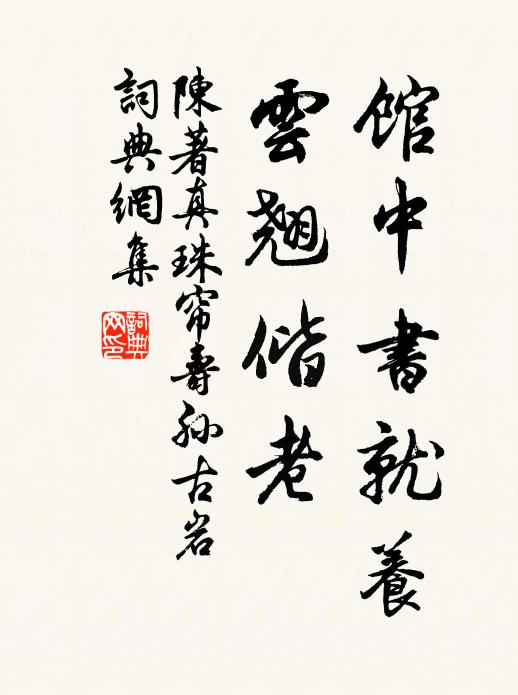 館中書就養
雲翹偕老
陳著真珠帘壽孙古岩
詞典網集
詞典网印